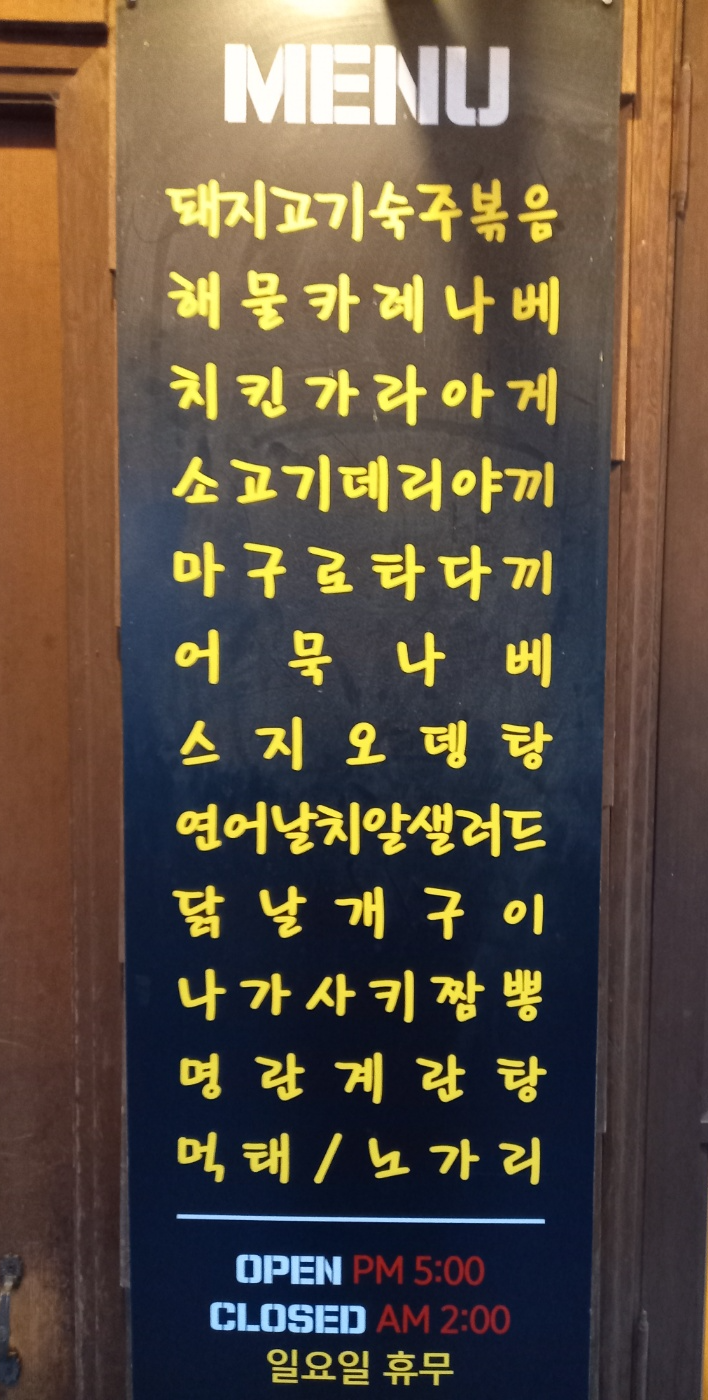 MENU
돼지고기숙주볶음
해물카레나베
치킨가라아게
소고기데리야끼
마구로타다끼
어묵나베
스지오뎅탕
연어날치알샐러드
닭날개구이
나가사키짬뽕
명란계란탕
먹태/노가리
OPEN PM 5:00
CLOSED AM 2:00
일요일 휴무